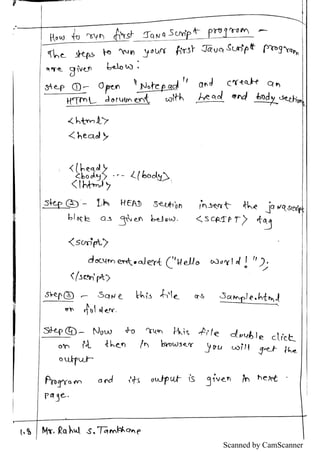 How to run first JavaScript program -
The steps to run your first JavaScript program
are given below:
step ① - Open "Notepad" and create an
HTML document with head and body section
<html>
<head>
</head>
<body> --- </body>
</html>
step ② - In HEAD section insert the javascript
block as given below. <SCRIPT> tag
<script>
document.alert ("Hello world! ");
</script>
step ③ - Save this file as Sample.html
on folder.
Step ④ - Now to run this file double click
on it then in browser you will get the
output
Program and its output is given in next
page.
1.8 Mr. Rahul S. Tamkhane
Scanned by CamScanner